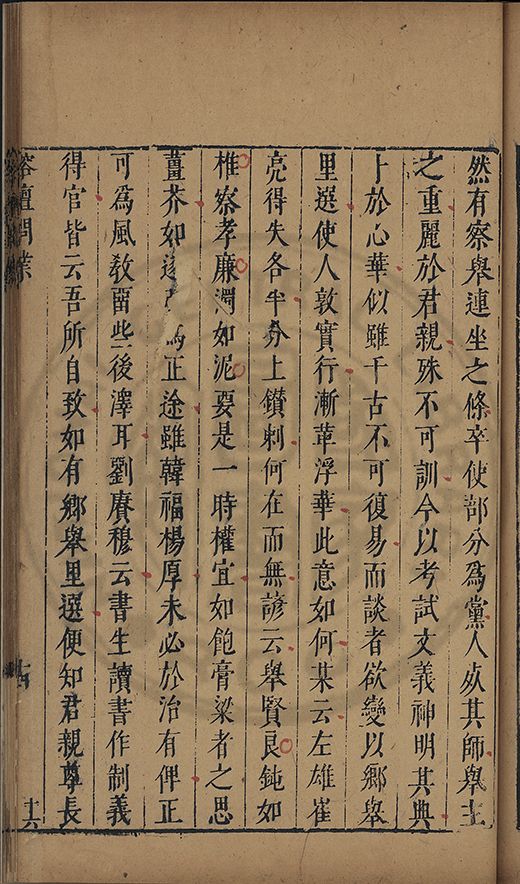 然有察舉連坐之條卒使部分為黨人从其師舉主
之重麗於君親殊不可訓今以考試文義神明其典
十於心華似雖千古不可復易而談者欲變以鄉舉
里選使人敦實行漸革浮華此意如何某云左雄崔
亮得失各半分上鑚剌何在而無諺云舉賢良鈍如
椎察孝廉濶如泥要是一時權宜如飽膏粱者之思
薑芥如 正途雖韓福楊厚未必於治有俾正
可為風教畱些後澤耳劉賡穆云書生讀書作制義
得官皆云吾所自致如有鄉舉里選便知君親尊長
榕壇問業
十六